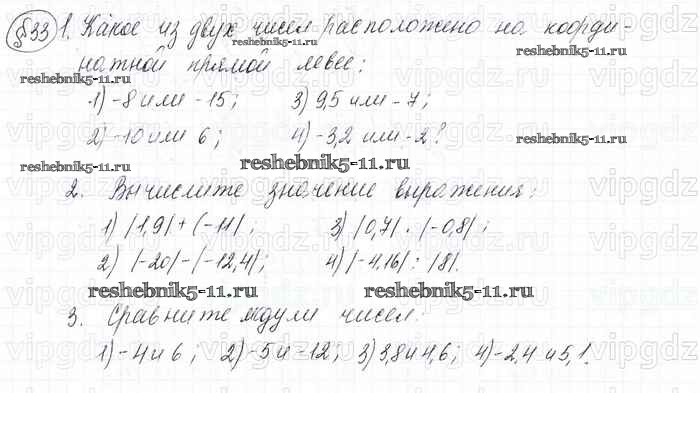 §33 1. Какое из двух чисел расположено на коорди-
reshebnik5-11.ru
reshebnik5-11.ru
натной прямой левее:
reshebnik5-11.ru
1) -8 или -15; 3) 9,5 или -7;
2) -10 или 6; 4) -3,2 или -2?
reshebnik5-11.ru
reshebnik5-11.ru
reshebnik5-11.ru
2. Вычислите значение выражения:
1) |1,9| + |-11|; 3) |0,7| · |-0,8|;
2) |-20| - |-12,4|; 4) |-4,16| : |8|.
reshebnik5-11.ru reshebnik5-11.ru
3. Сравните модули чисел:
1) -4 и 6; 2) -5 и -12; 3) 3,8 и 4,6; 4) -2,4 и 5,1.